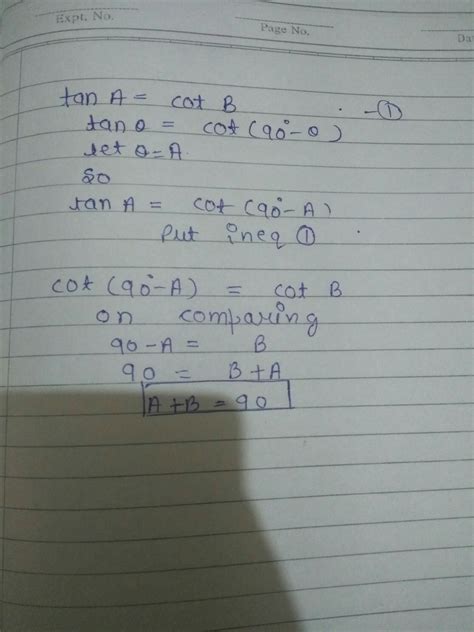 Expt. No.
Page No.
Da
tan A = cot B - ①
tan θ = cot (90° - θ)
let θ = A.
So
tan A = cot (90° - A)
Put in eq ①
cot (90° - A) = cot B
on comparing
90 - A = B
90 = B + A
A + B = 90